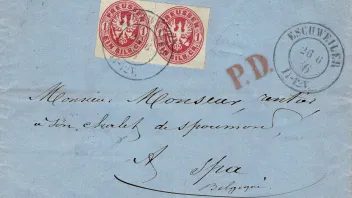 PREUSSEN
EIN SILB.GR.
PREUSSEN
EIN SILB.GR.
ESCHWEILER
26 6
P.D.
Monsieur Monseur, rentier
à Son chalet de spaumont,
A
Spa
Belgique